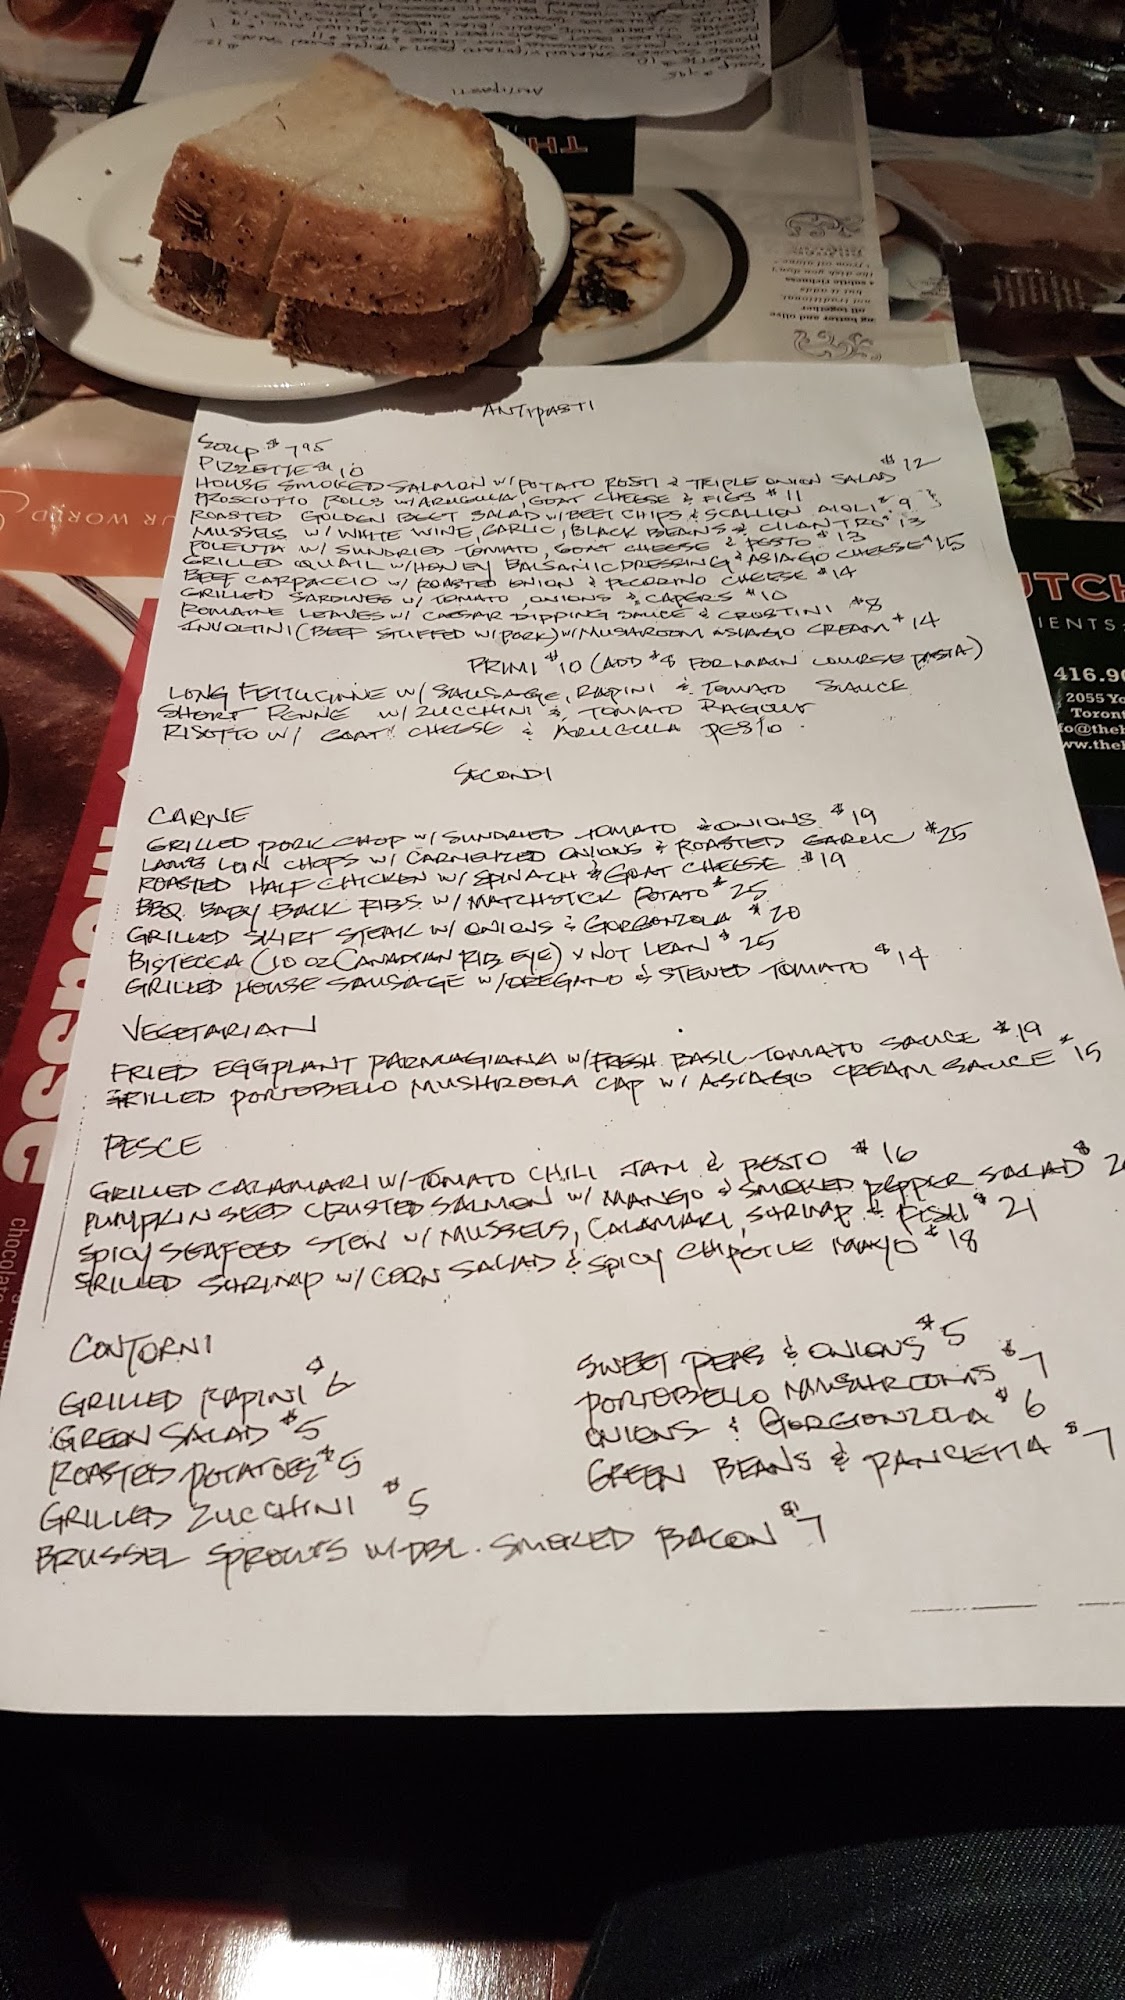 ANTIPASTI
SOUP $7.95
PIZZETTE $10
HOUSE SMOKED SALMON W/ POTATO ROSTI & TRIPLE ONION SALAD $12
PROSCIUTTO ROLLS W/ ARUGULA, GOAT CHEESE & FIGS $11
ROASTED GOLDEN BEET SALAD W/ BEET CHIPS & SCALLION AIOLI $9
MUSSELS W/ WHITE WINE, GARLIC, BLACK BEANS & CILANTRO $13
POLENTA W/ SUNDRIED TOMATO, GOAT CHEESE & PESTO $13
GRILLED QUAIL W/ HONEY BALSAMIC DRESSING & ASIAGO CHEESE $15
BEEF CARPACCIO W/ ROASTED ONION & PECORINO CHEESE $14
GRILLED SARDINES W/ TOMATO, ONIONS & CAPERS $10
ROMAINE LEAVES W/ CAESAR DIPPING SAUCE & CROSTINI $8
INVOLTINI (BEEF STUFFED W/ PORK) W/ MUSHROOM ASIAGO CREAM $14
PRIMI $10 (ADD $8 FOR MAIN COURSE PASTA)
LONG FETTUCINNE W/ SAUSAGE, RAPINI & TOMATO SAUCE
SHORT PENNE W/ ZUCCHINI & TOMATO RAGOUT
RISOTTO W/ GOAT CHEESE & ARUGULA PESTO
SECONDI
CARNE
GRILLED PORK CHOP W/ SUNDRIED TOMATO & ONIONS $19
LAMB LOIN CHOPS W/ CARMELIZED ONIONS & ROASTED GARLIC $25
ROASTED HALF CHICKEN W/ SPINACH & GOAT CHEESE $19
BBQ BABY BACK RIBS W/ MATCHSTICK POTATO $25
GRILLED SKIRT STEAK W/ ONIONS & GORGONZOLA $20
BISTECCA (10 OZ CANADIAN RIB EYE) X NOT LEAN $25
GRILLED HOUSE SAUSAGE W/ OREGANO & STEWED TOMATO $14
VEGETARIAN
FRIED EGGPLANT PARMAGIANA W/ FRESH BASIL TOMATO SAUCE $19
GRILLED PORTOBELLO MUSHROOM CAP W/ ASIAGO CREAM SAUCE $15
PESCE
GRILLED CALAMARI W/ TOMATO CHILI JAM & PESTO $16
PUMPKIN SEED CRUSTED SALMON W/ MANGO & SMOKED PEPPER SALAD $2
SPICY SEAFOOD STEW W/ MUSSELS, CALAMARI, SHRIMP & FISH $21
GRILLED SHRIMP W/ CORN SALAD & SPICY CHIPOTLE MAYO $18
CONTORNI
GRILLED RAPINI $6
GREEN SALAD $5
ROASTED POTATOES $5
GRILLED ZUCCHINI $5
BRUSSEL SPROUTS W/ DBL. SMOKED BACON $7
SWEET PEAS & ONIONS $5
PORTOBELLO MUSHROOMS $7
ONIONS & GORGONZOLA $6
GREEN BEANS & PANCIETTA $7
ANTIPASTI
TH
UR WORLD
UTCH
IENTS
416.90
2055 Yo
Toront
fo@theh
ww.theh
chocolate